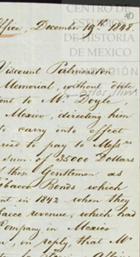 CENTRO DE
Office, December 19th 1848.
DE HISTORIA
DE MEXICO
Viscount Palmerston
Memorial, without date
to Mr Doyle
Mexico, directing him
to carry into effect
to pay to Messrs
sum of 35000 Dollars
these Gentlemen as
Tobacco Bonds which
in 1842 when they
Tobacco revenue, which had
Company in Mexico
in reply, that Mr